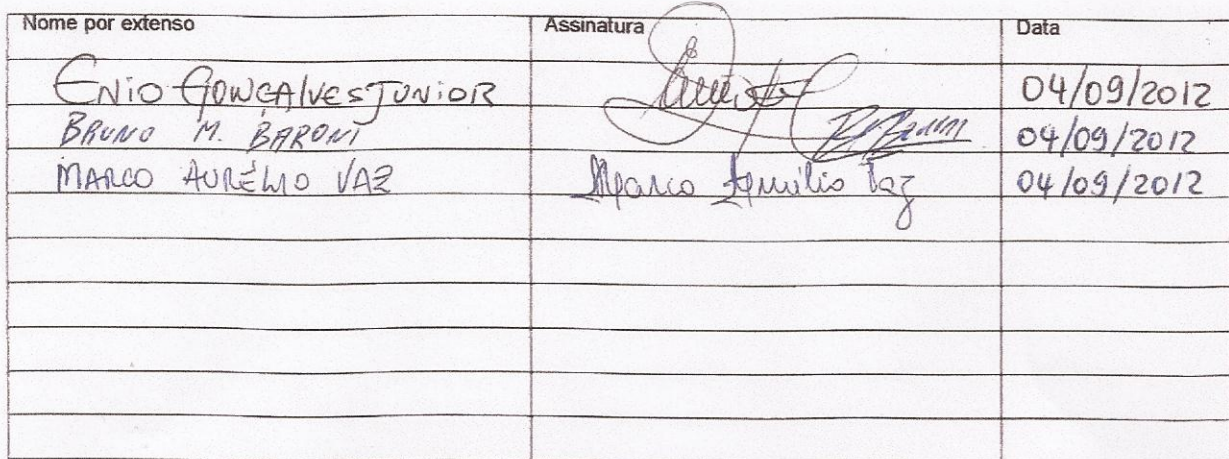 Nome por extenso Assinatura Data
ENIO GONÇALVES JUNIOR 04/09/2012
BRUNO M. BARONI 04/09/2012
MARCO AURÉLIO VAZ Marco Aurélio Vaz 04/09/2012